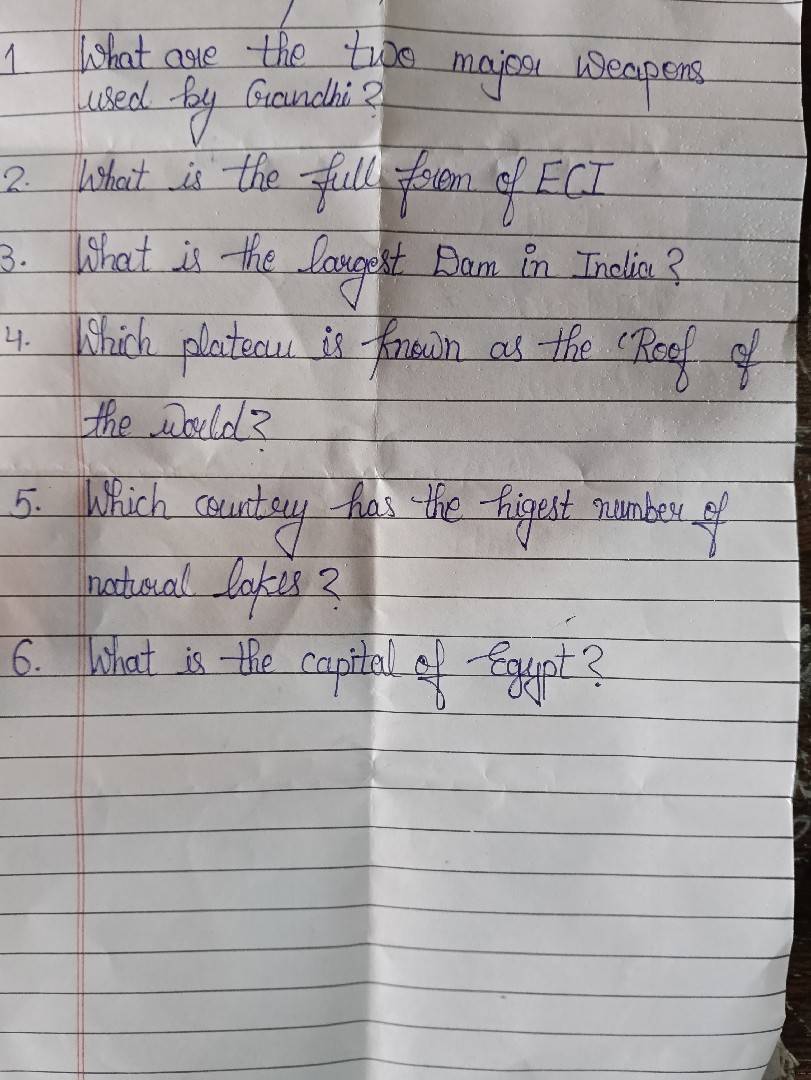 1 What are the two major weapons
used by Gandhi?
2. What is the full form of ECI
3. What is the largest Dam in India?
4. Which plateau is known as the 'Roof of
the world?
5. Which country has the higest number of
natural lakes?
6. What is the capital of Egypt?